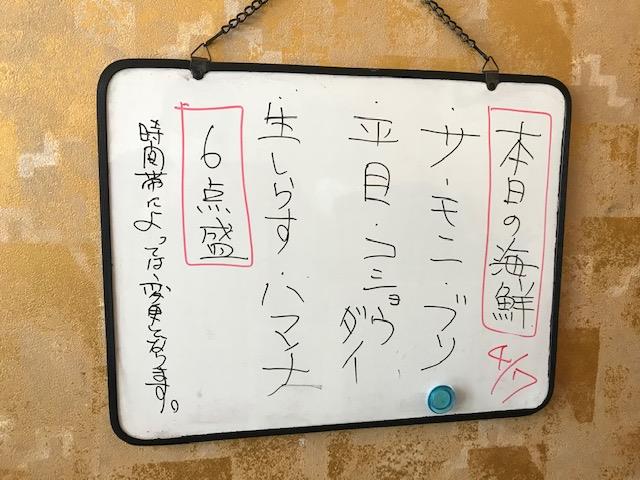 本日の海鮮 4/7
・サーモン・ブリ
・平貝・コショウダイ
・生しらす・ハマチ
6点盛
時間帯によっては変更となります。